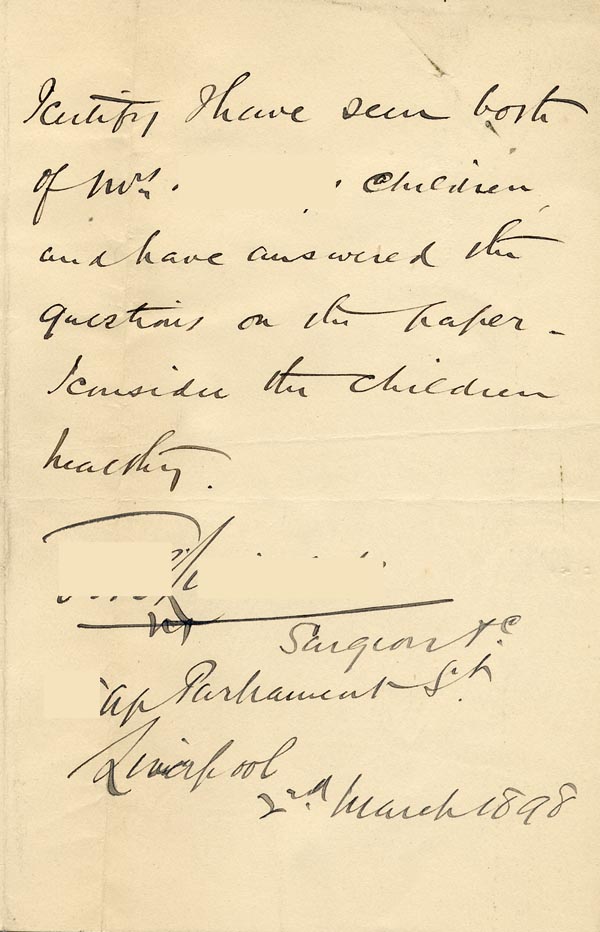 I certify I have seen both
of Mrs. children
and have answered the
questions on the paper -
I consider the children
healthy.
Surgeon &c
Up Parliament St.
Liverpool
2nd March 1898